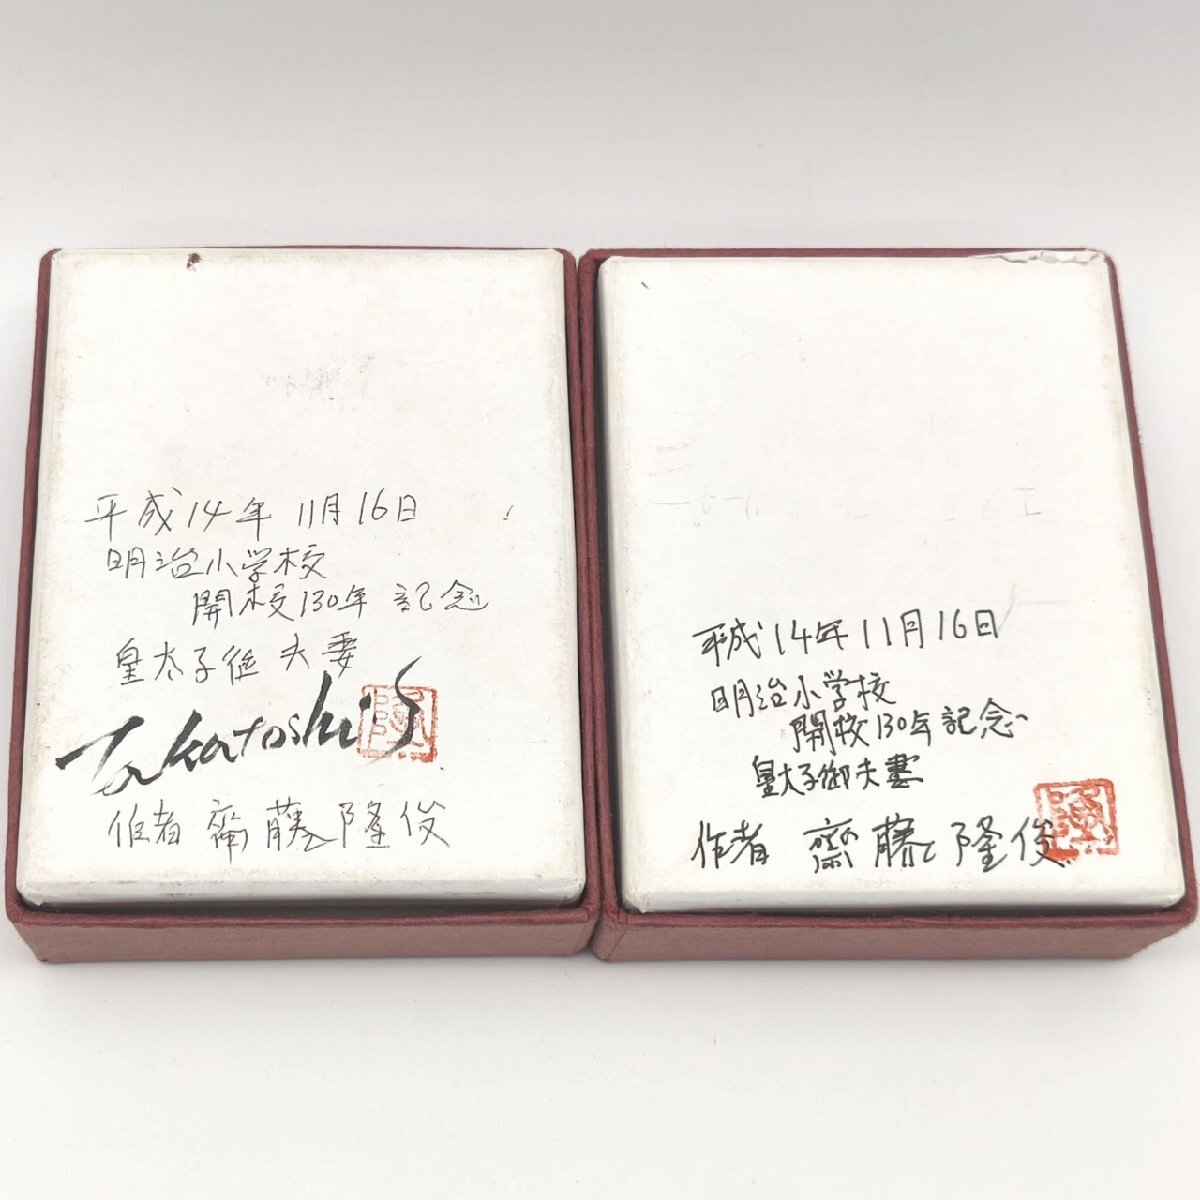 平成14年 11月16日
明治小学校
開校130年 記念
皇太子御夫妻
Takatoshi S
隆
作者 齋藤隆俊
平成14年11月16日
明治小学校
開校130年記念
皇太子御夫妻
隆
作者 齋藤隆俊